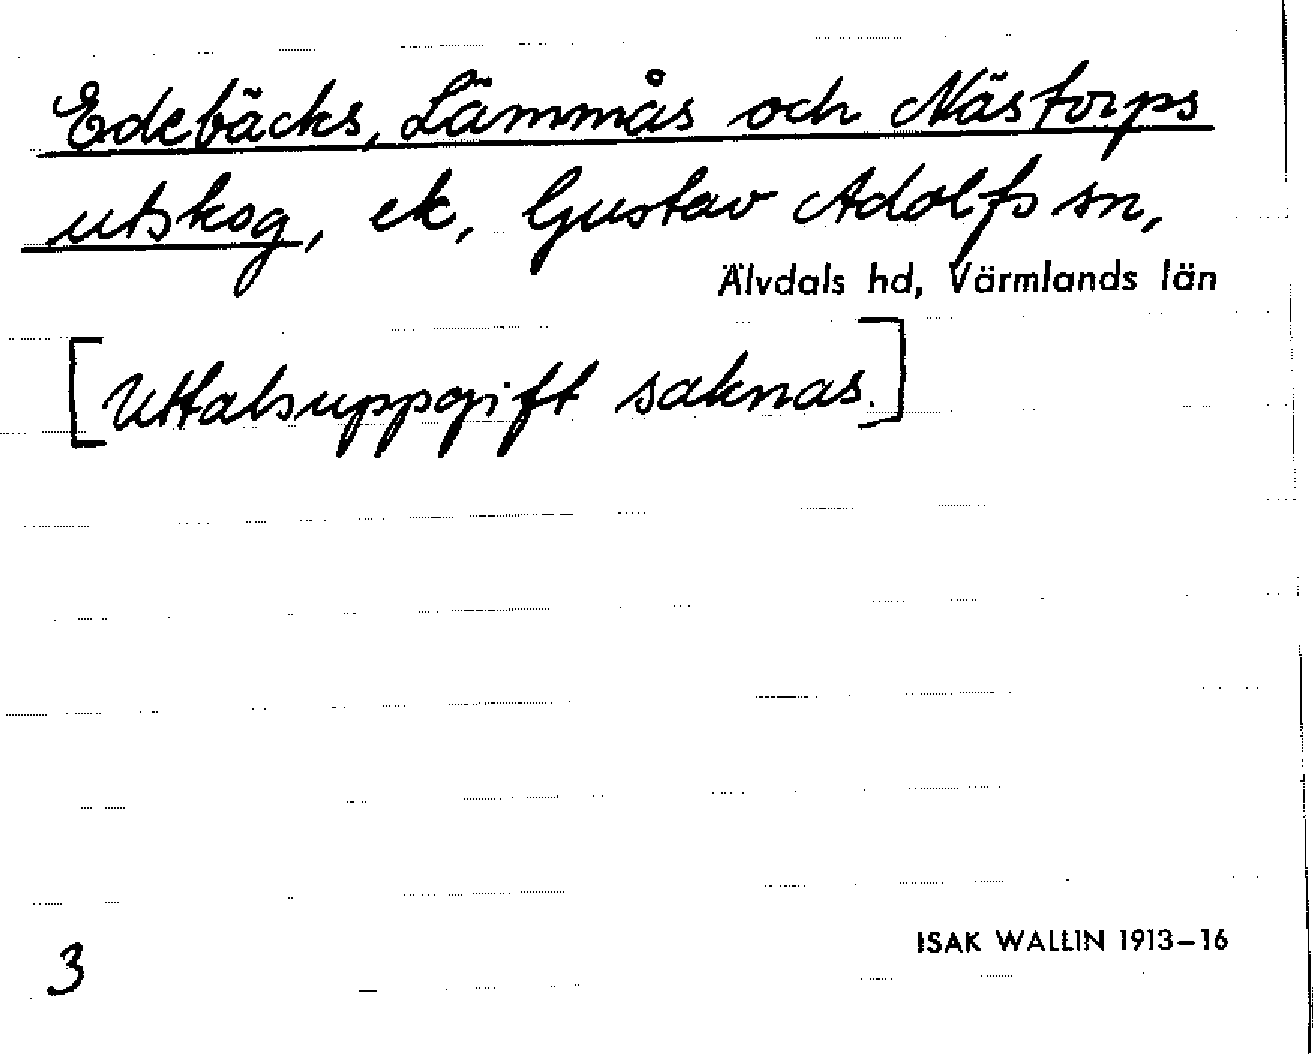 Edebäcks, Lämmås och Nästorps
utskog, ek, Gustav Adolfs sn,
Älvdals hd, Värmlands län
[Uttalsuppgift saknas.]
3
ISAK WALLIN 1913–16